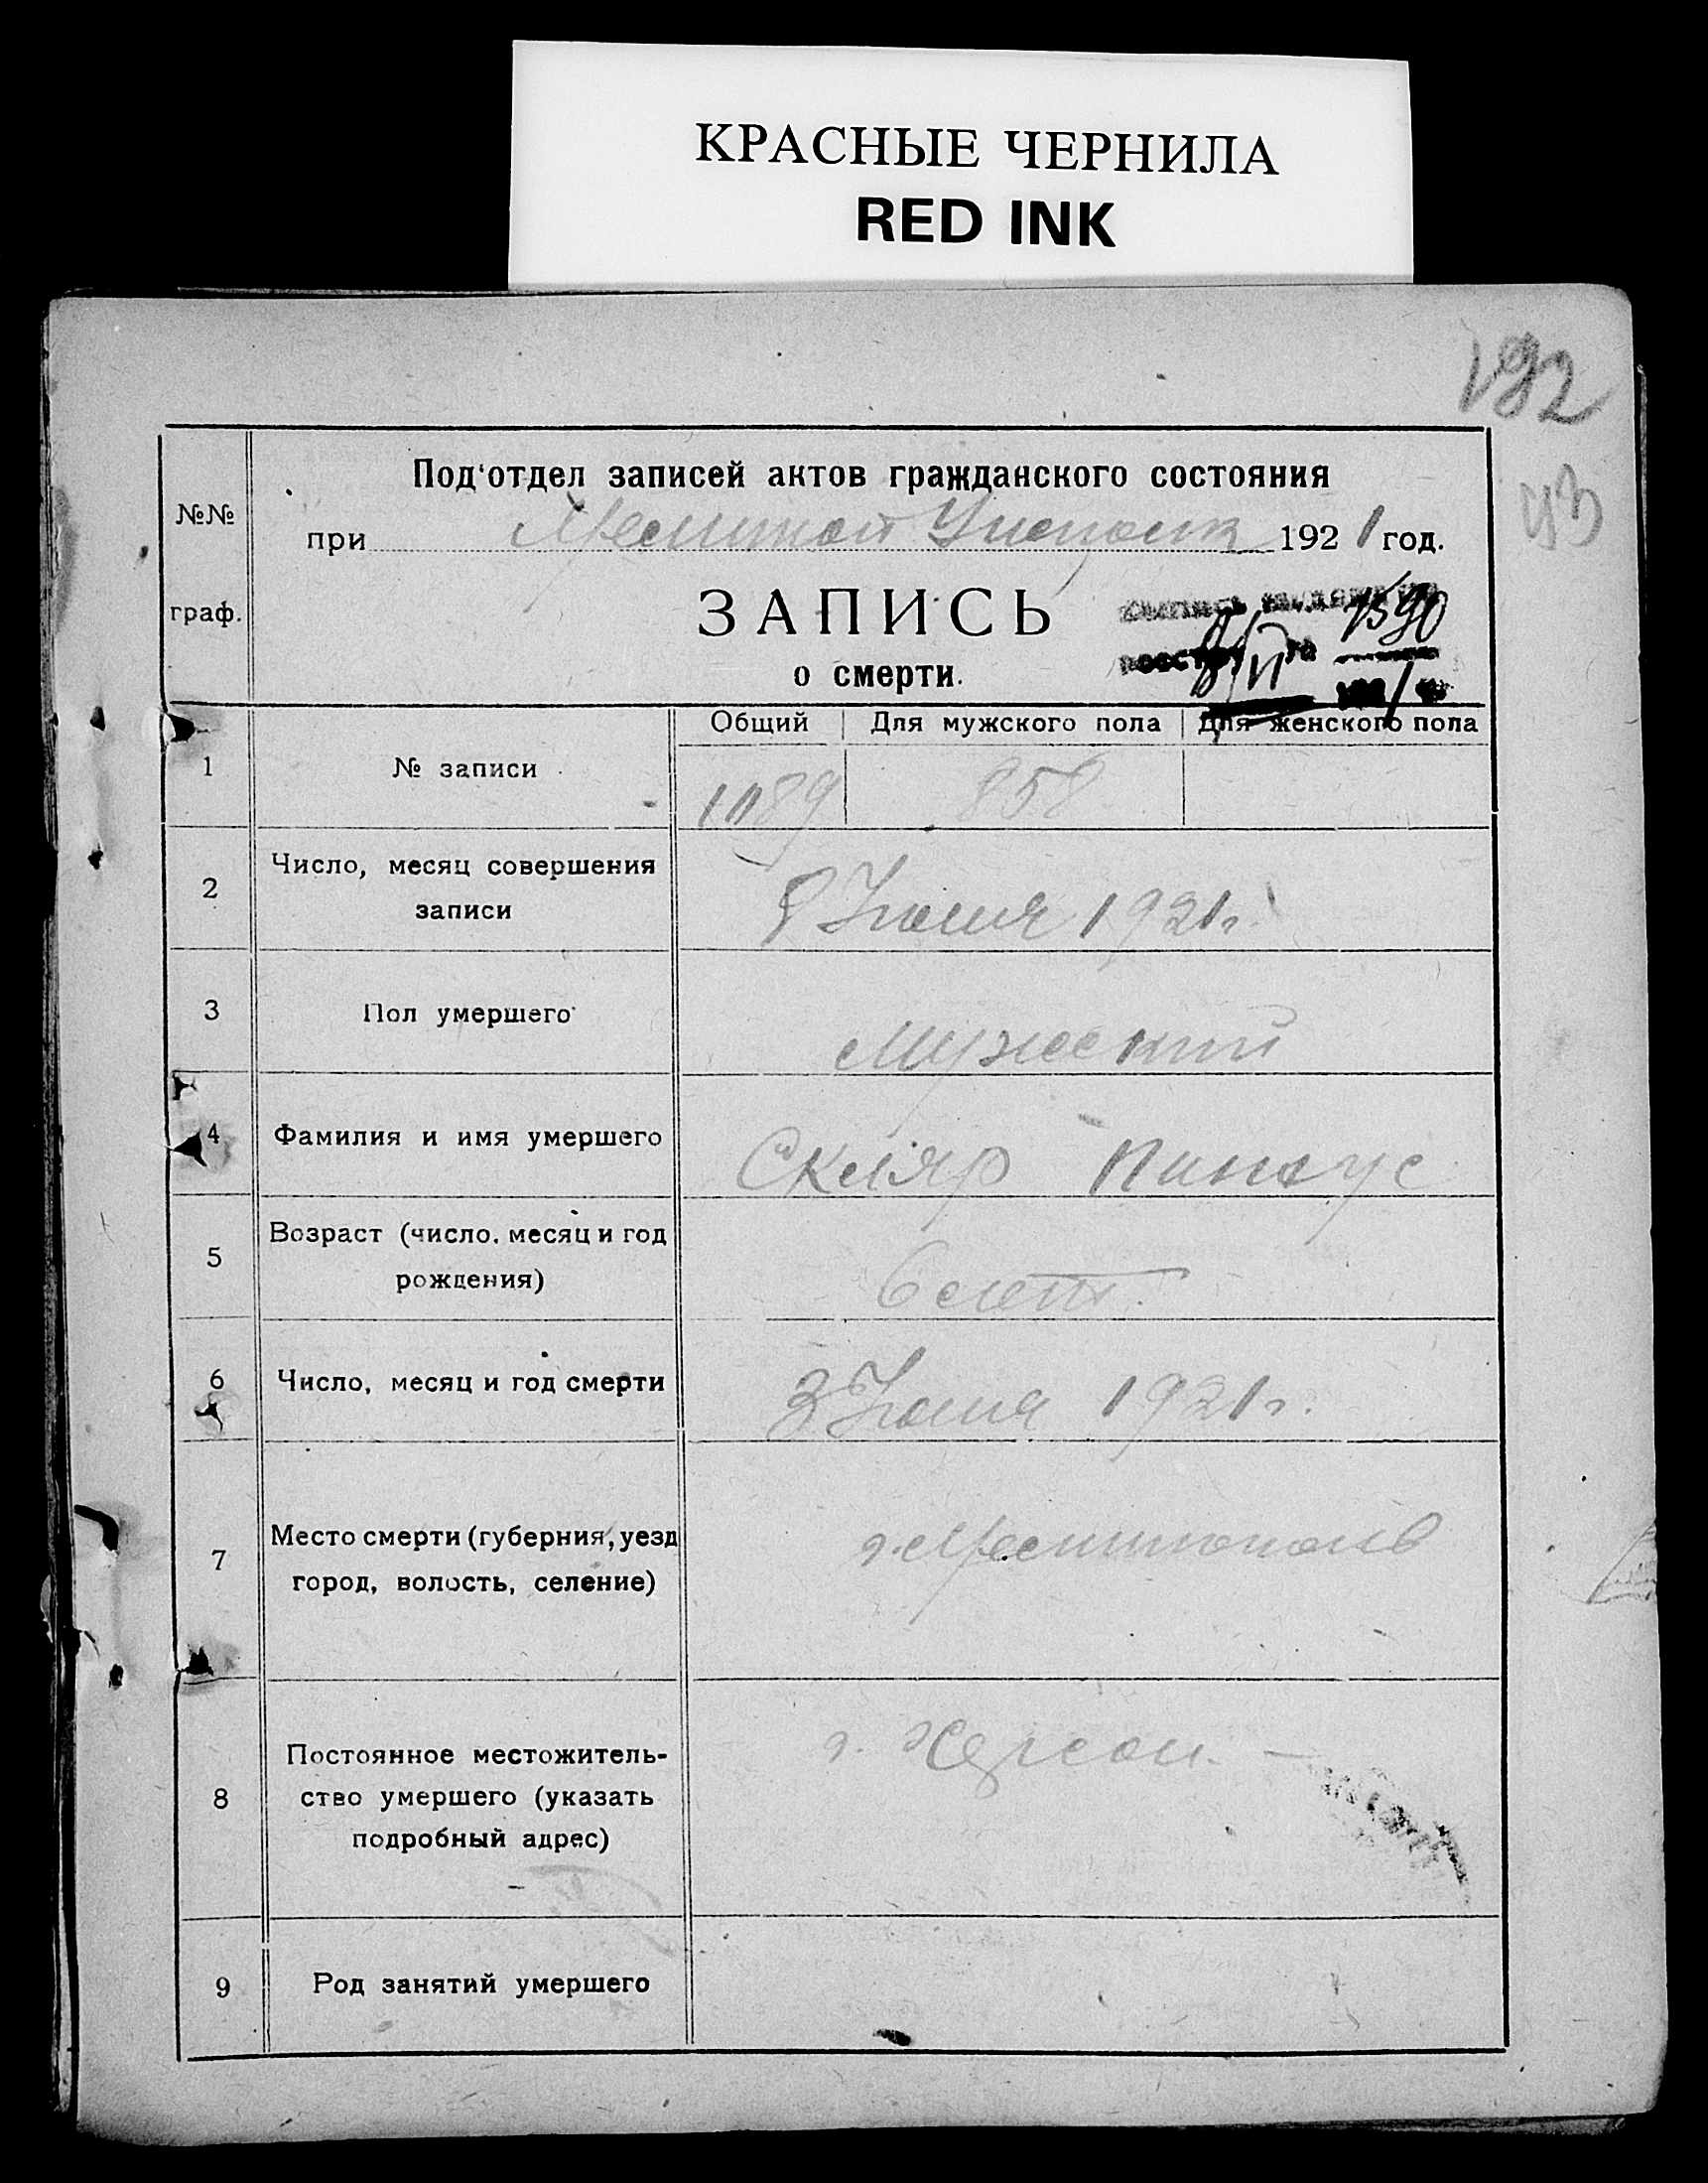 КРАСНЫЕ ЧЕРНИЛА
RED INK
192
43
Под'отдел записей актов гражданского состояния
№№
при 1921 год.
граф.
ЗАПИСЬ
1590
о смерти.
Общий Для мужского пола Для женского пола
1 № записи 1189 858
2 Число, месяц совершения
записи
8 Июня 1921 г.
3 Пол умершего
Мужеский
4 Фамилия и имя умершего
Скляр Пинкус
5 Возраст (число, месяц и год
рождения)
6 лет.
6 Число, месяц и год смерти
3 Июня 1921 г.
7 Место смерти (губерния, уезд
город, волость, селение)
г. Мелитополь
8 Постоянное местожитель-
ство умершего (указать
подробный адрес)
г. Херсон.
9 Род занятий умершего